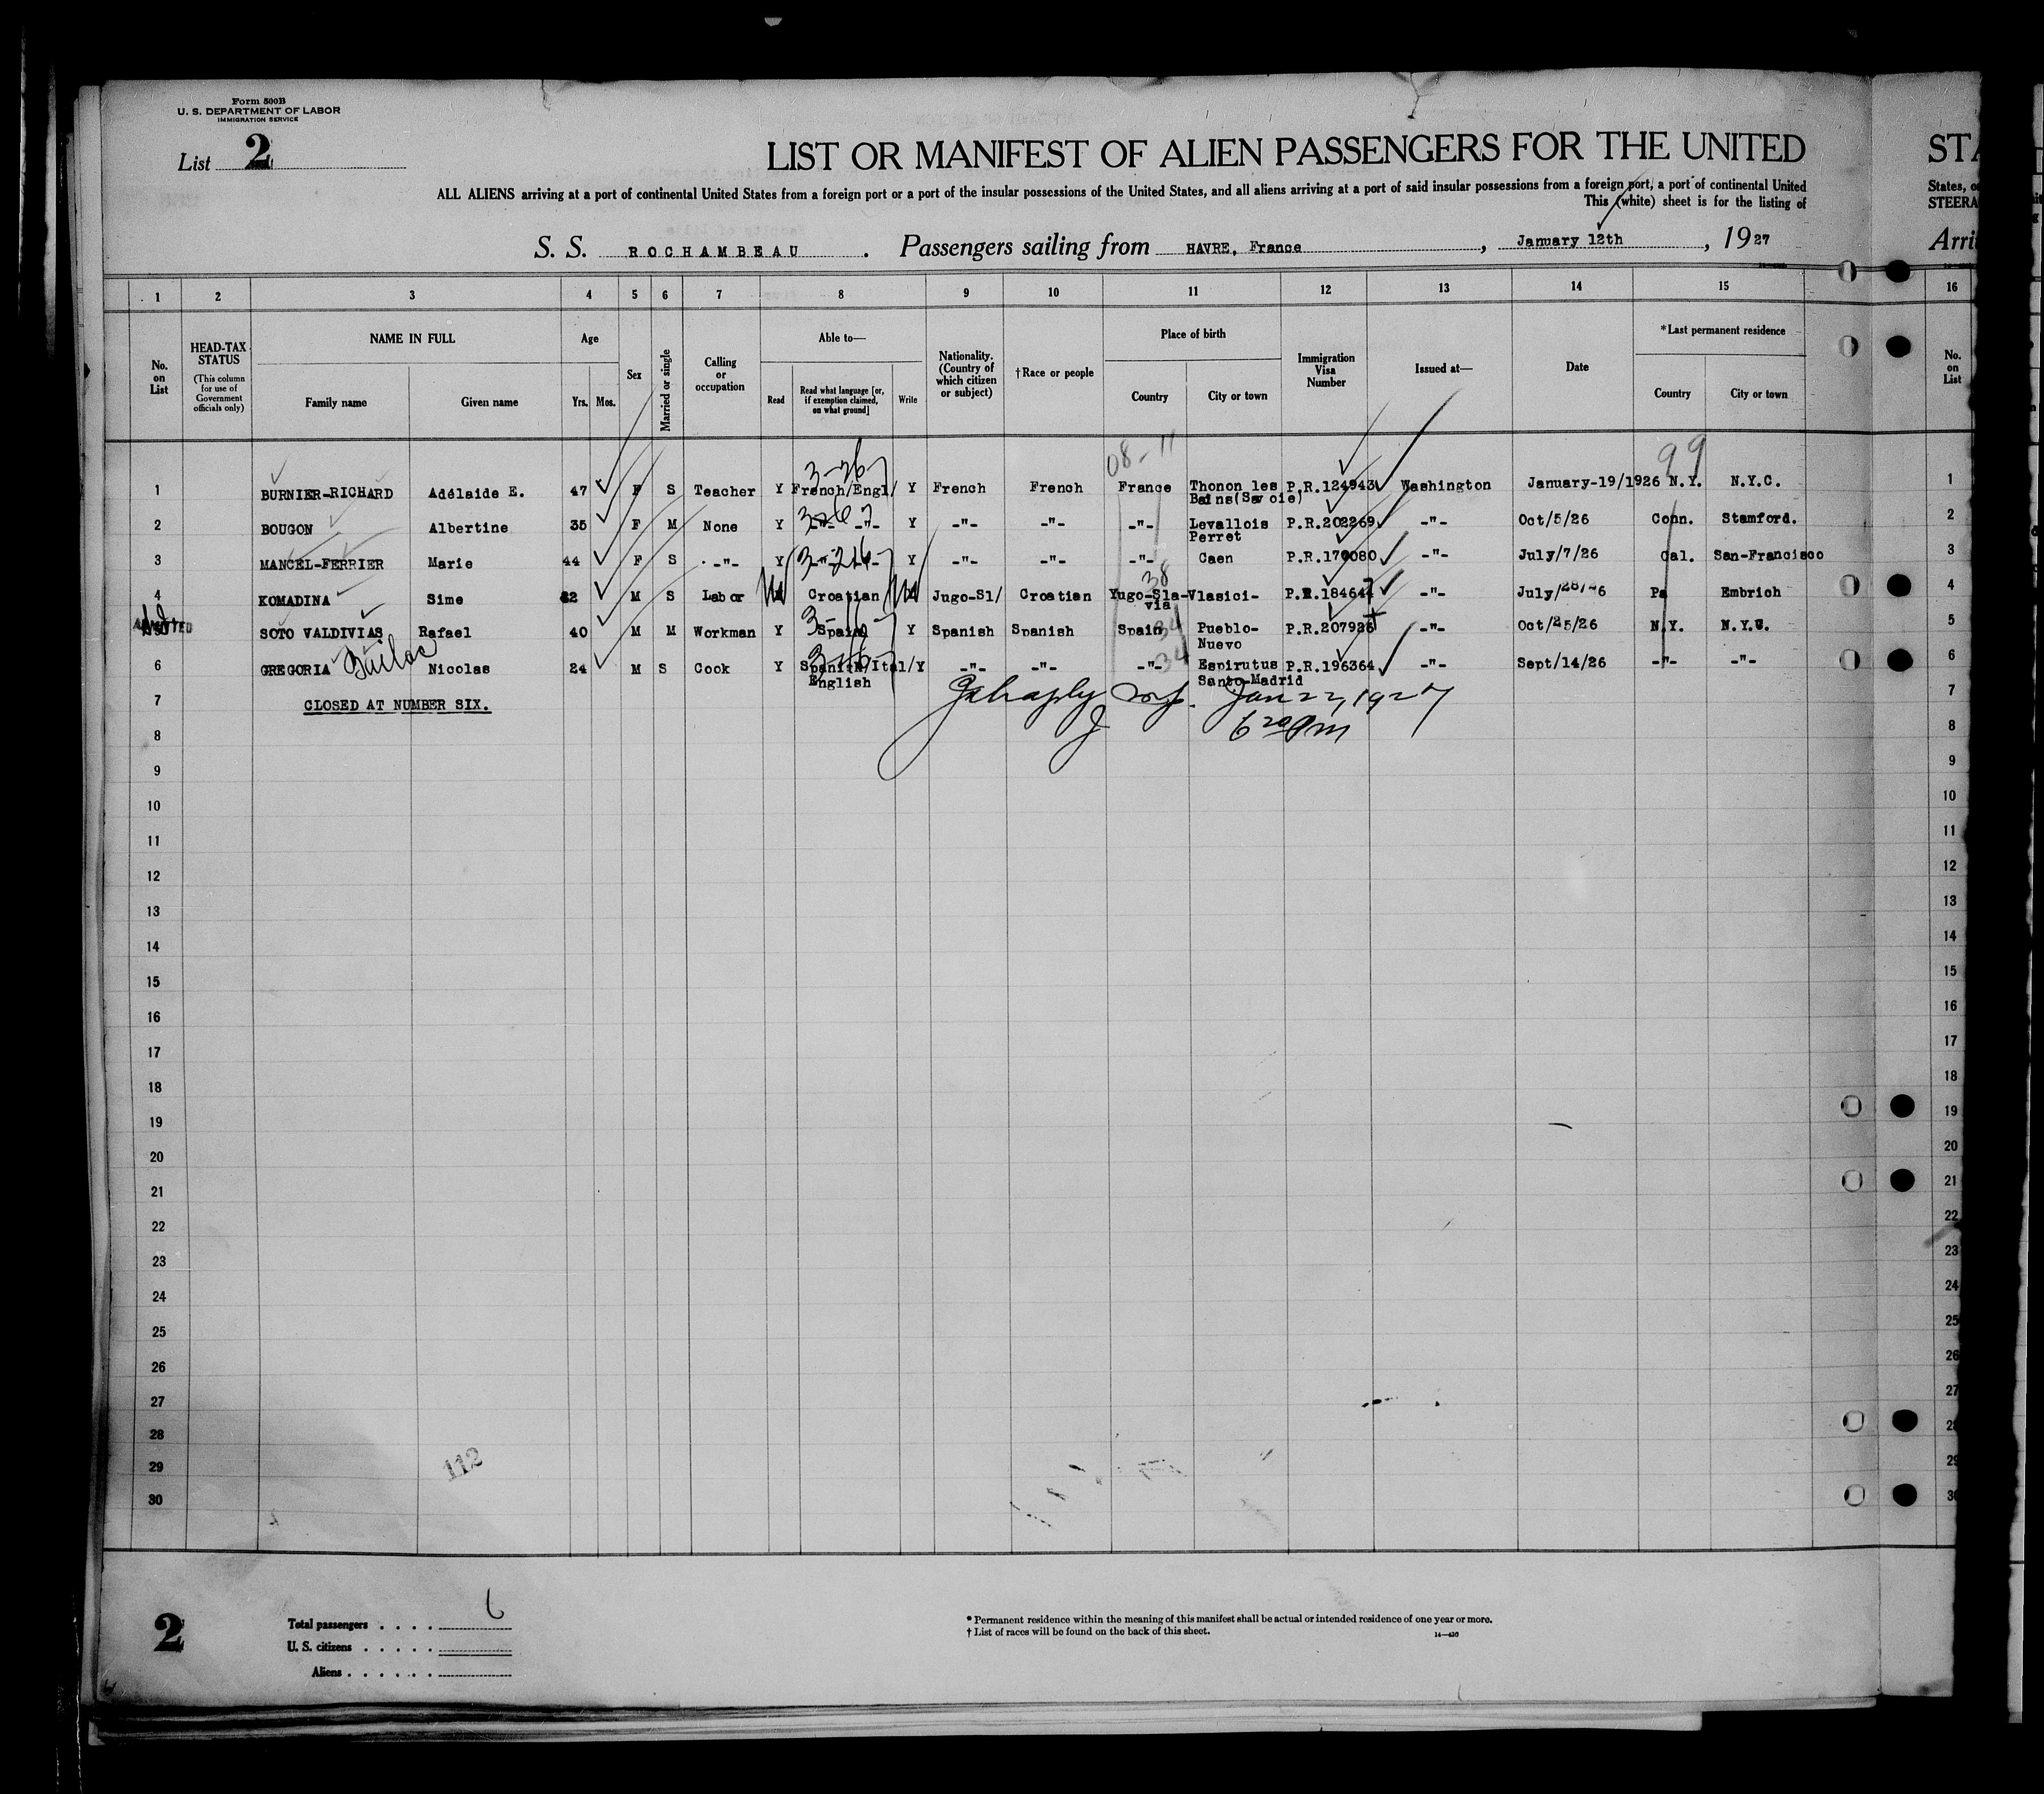 Form 500B
U. S. DEPARTMENT OF LABOR
IMMIGRATION SERVICE
List 2
LIST OR MANIFEST OF ALIEN PASSENGERS FOR THE UNITED
STA
ALL ALIENS arriving at a port of continental United States from a foreign port or a port of the insular possessions of the United States, and all aliens arriving at a port of said insular possessions from a foreign port, a port of continental United
States, o
This (white) sheet is for the listing of
STEERA
S. S. ROCHAMBEAU. Passengers sailing from HAVRE, France, January 12th, 1927
Arri
1 2 3 4 5 6 7 8 9 10 11 12 13 14 15 16
No. on List
HEAD-TAX STATUS (This column for use of Government officials only)
NAME IN FULL
Family name Given name
Age
Yrs. Mos.
Sex
Married or single
Calling or occupation
Able to—
Read Read what language [or, if exemption claimed, on what ground] Write
Nationality. (Country of which citizen or subject)
†Race or people
Place of birth
Country City or town
Immigration Visa Number
Issued at—
Date
*Last permanent residence
Country City or town
No. on List
08-11 99
1 BURNIER-RICHARD Adélaide E. 47 F S Teacher Y French/Engl/ Y French French France Thonon les Bains(Savoie) P.R.124943 Washington January-19/1926 N.Y. N.Y.C. 1
2 BOUGON Albertine 35 F M None Y -"- -"- Y -"- -"- -"- Levallois Perret P.R.202269 -"- Oct/5/26 Conn. Stamford. 2
3 MANCEL-FERRIER Marie 44 F S -"- Y -"- -"- Y -"- -"- -"- Caen P.R.170080 -"- July/7/26 Cal. San-Francisco 3
4 KOMADINA Sime M S Labor Croatian Jugo-Sl/ Croatien Yugo-Slavia Vlasici- P.R.184644 -"- July/28/-6 Pa Embrich 4
ADMITTED SOTO VALDIVIAS Rafael 40 M M Workman Y Spain Y Spanish Spanish Spain Pueblo-Nuevo P.R.207936 -"- Oct/25/26 N.Y. N.Y.C. 5
6 GREGORIA Nicolas 24 M S Cook Y Spanish/Ital/Y -"- -"- -"- Espirutus Santo-Madrid P.R.196364 -"- Sept/14/26 -"- -"- 6
English
7 CLOSED AT NUMBER SIX. 7
Jan 22, 1927
6 20 PM
8 8
9 9
10 10
11 11
12 12
13 13
14 14
15 15
16 16
17 17
18 18
19 19
20 20
21 21
22 22
23 23
24 24
25 25
26 26
27 27
28 28
29 29
30 30
112
2
Total passengers . . . . 6
U. S. citizens . . . . .
Aliens . . . . . .
* Permanent residence within the meaning of this manifest shall be actual or intended residence of one year or more.
† List of races will be found on the back of this sheet.
14—430